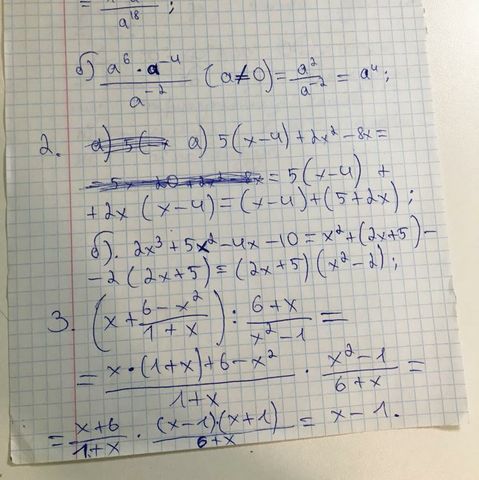 a¹⁸ ;
б) (a⁶ · a⁻⁴)/(a⁻²) (a≠0) = a²/a⁻² = a⁴;
2. а) 5(x−4)+2x²−8x=
= 5(x−4) +
+2x (x−4) = (x−4)+(5+2x);
б). 2x³+5x²−4x−10 = x²+(2x+5)−
−2(2x+5) = (2x+5)(x²−2);
3. (x + (6−x²)/(1+x)) : (6+x)/(x²−1) =
= (x·(1+x)+6−x²)/(1+x) · (x²−1)/(6+x) =
= (x+6)/(1+x) · ((x−1)·(x+1))/(6+x) = x−1.